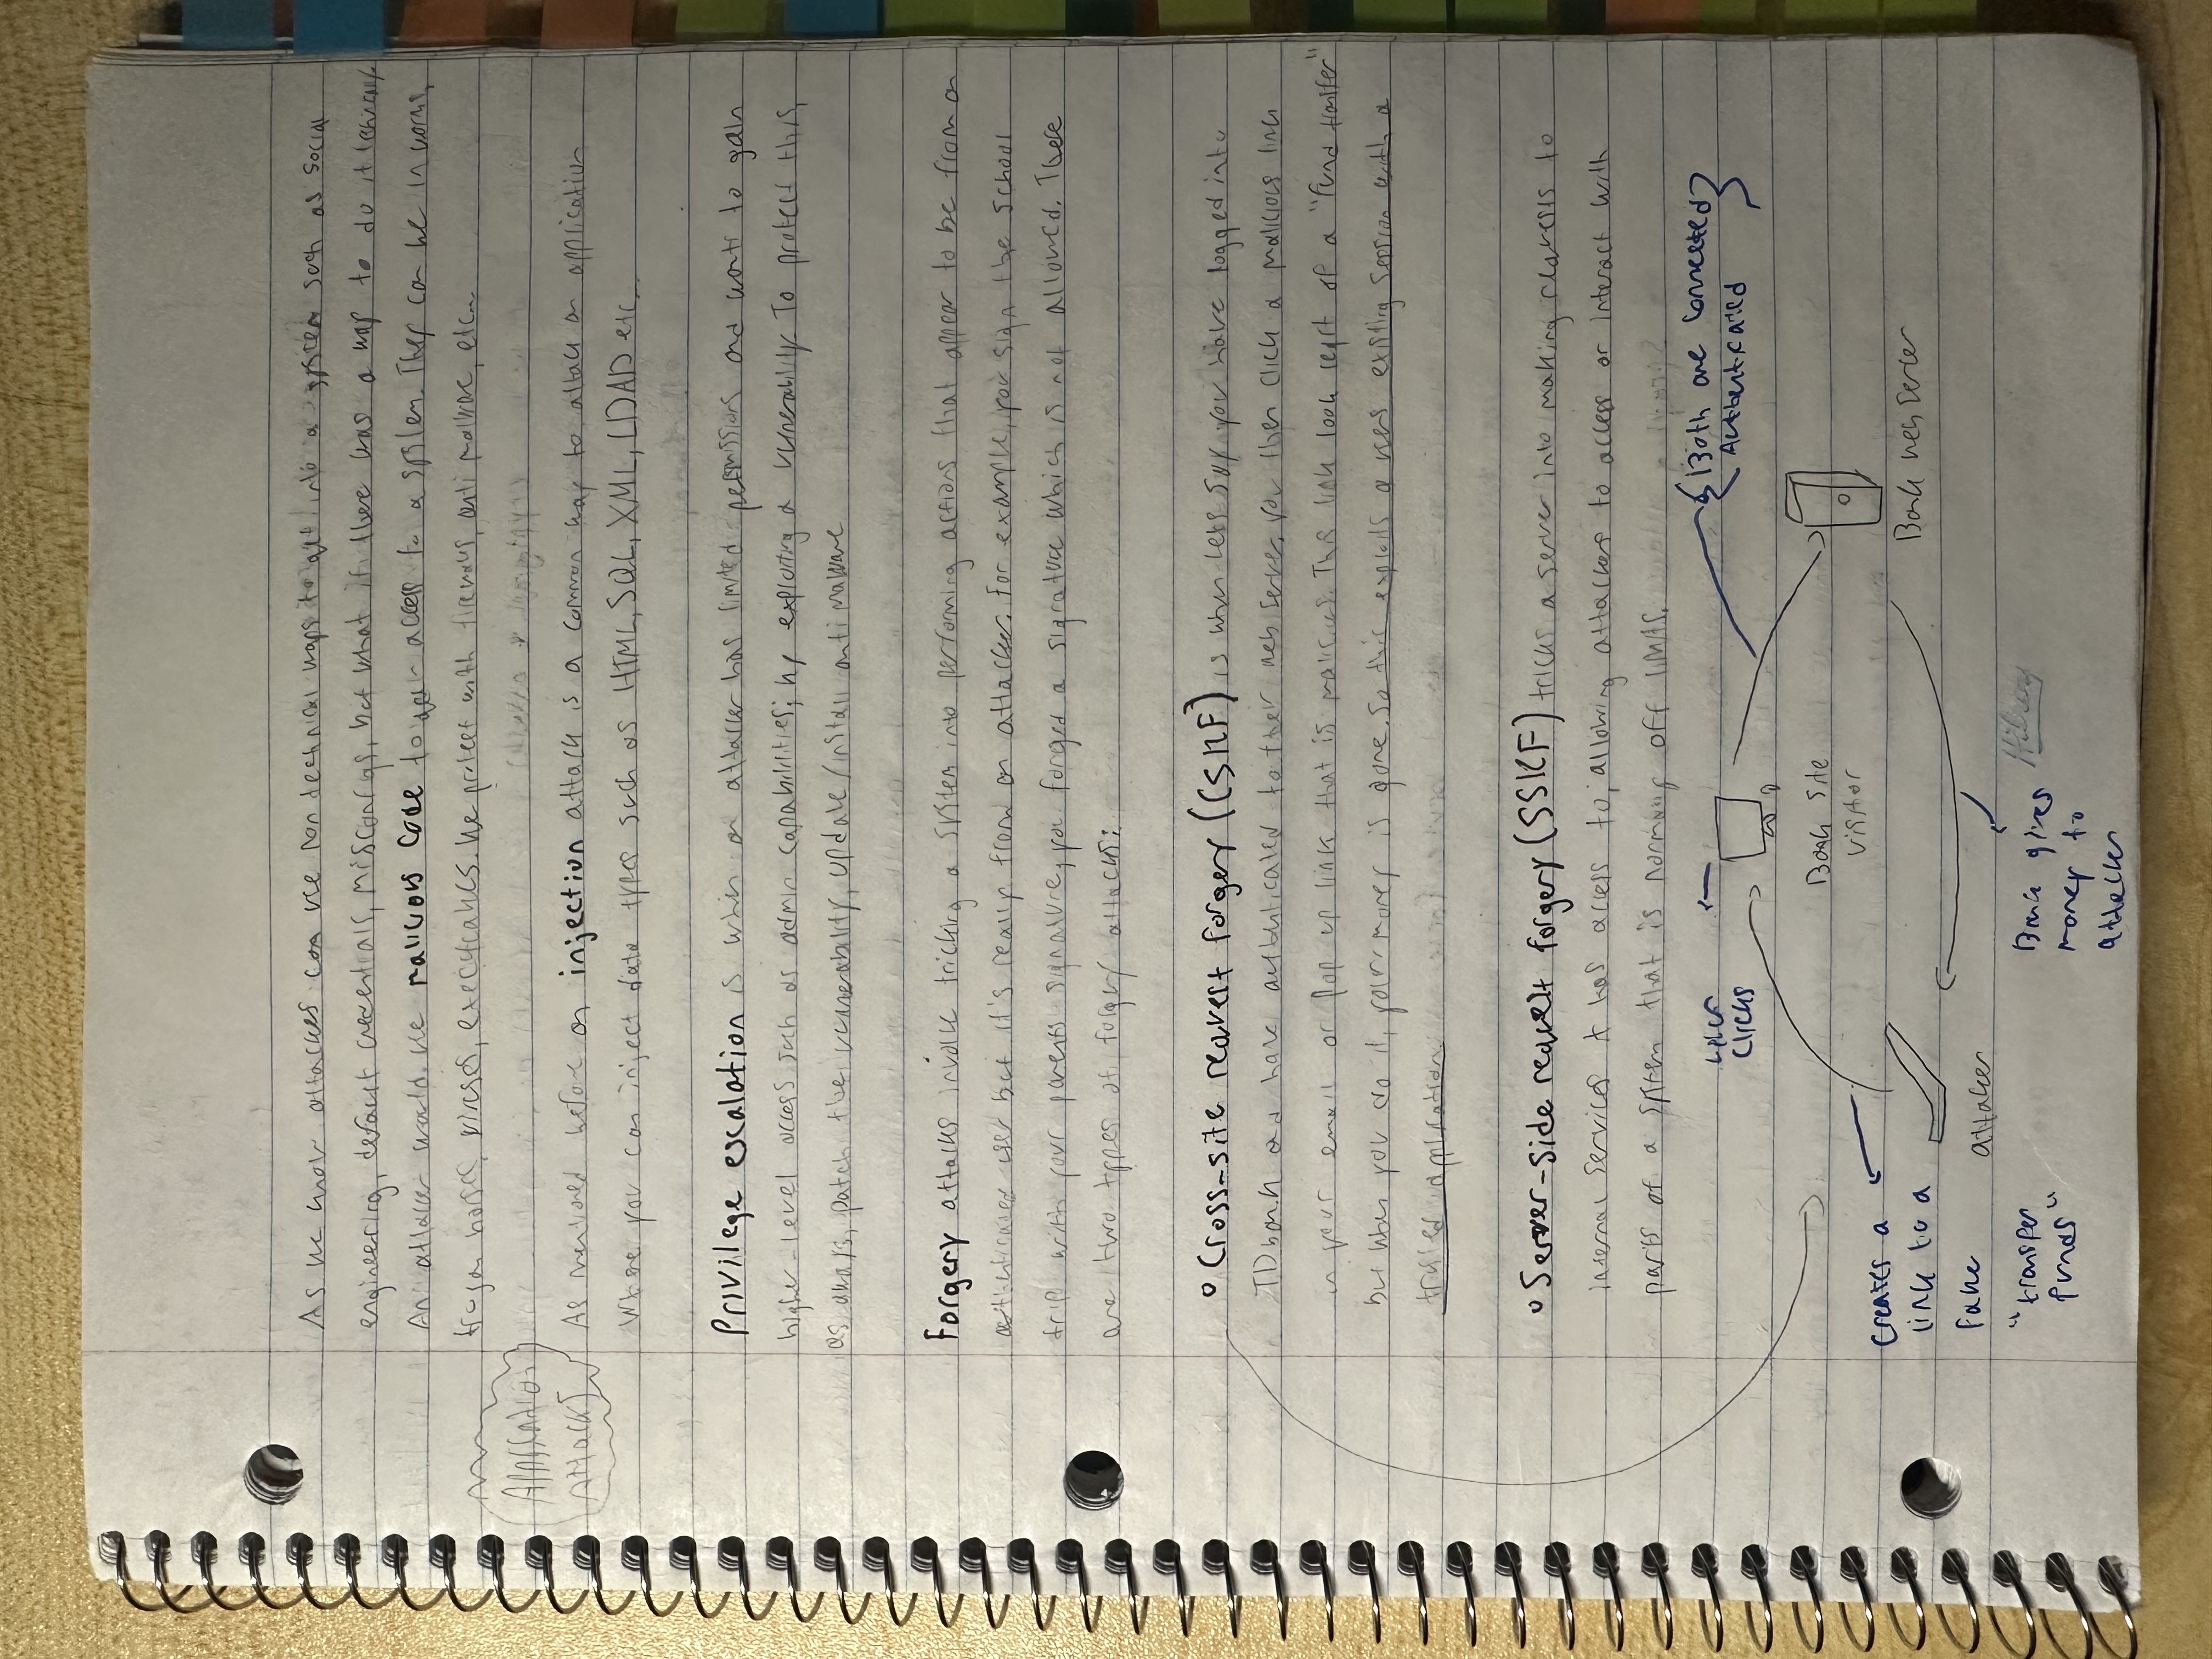 As we know attackers can use non technical ways to get into a system such as social
engineering, default credentials, misconfigs, but what if there was a way to do it
An attacker would use malicious code to gain access to a system. They can be in worms,
trojan horses, viruses, executables. We protect with firewalls, anti malware, etc...
Application
Attacks
As mentioned before an injection attack is a common way to attack an application
Where you can inject data types such as HTML, SQL, XML, LDAP etc...
Privilege escalation is when an attacker has limited permissions and wants to gain
higher-level access such as admin capabilities; by exploiting a vulnerability. To protect this,
as always, patch the vulnerability, update/install anti malware
Forgery attacks involve tricking a system into performing actions that appear to be from an
authenticated user but it's really from an attacker. For example, you sign the school
trip with your parents signature, you forged a signature which is not allowed. There
are two types of forgery attacks:
• Cross-site request forgery (CSRF) is when lets say you have logged into
TD bank and have authenticated to their web server, you then click a malicious link
in your email or pop up link that is malicious. This link look legit of a "fund transfer"
but when you do it, your money is gone. So this exploits a users existing session with a
trusted application.
• Server-Side request forgery (SSRF) tricks a server into making requests to
internal services it has access to, allowing attackers to access or interact with
parts of a system that is normally off limits.
Both are connected
Authenticated
clicks
Bank site
visitor
Creates a
link to a
fake
"transfer
funds"
attaker
Bank web server
Bank gives
money to
attacker